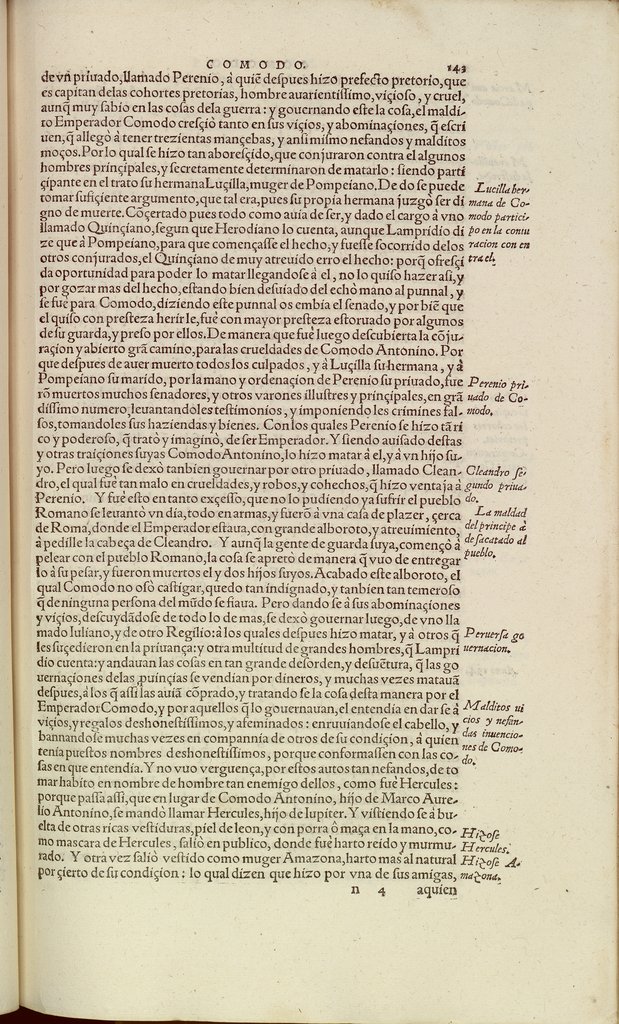 COMODO. 143
de vn priuado, llamado Perenio, à quiē despues hizo prefecto pretorio, que
es capitan delas cohortes pretorias, hombre auarientissimo, viçioso, y cruel,
aunq̃ muy sabio en las cosas dela guerra: y gouernando este la cosa, el maldi-
to Emperador Comodo cresçiò tanto en sus viçios, y abominaçiones, q̃ escri
uen, q̃ allegò à tener trezientas mançebas, y ansi mismo nefandos y malditos
moços. Por lo qual se hizo tan aboresçido, que conjuraron contra el algunos
hombres prinçipales, y secretamente determinaron de matarlo: siendo parti
çipante en el trato su hermana Luçilla, muger de Pompeiano. De do se puede
tomar sufiçiente argumento, que tal era, pues su propia hermana juzgò ser di
gno de muerte. Cōçertado pues todo como auia de ser, y dado el cargo à vno
llamado Quinçiano, segun que Herodiano lo cuenta, aunque Lampridio di
ze que à Pompeiano, para que començasse el hecho, y fuesse socorrido delos
otros conjurados, el Quinçiano de muy atreuido erro el hecho: porq̃ ofresçi
da oportunidad para poder lo matar llegandose à el, no lo quiso hazer asi, y
por gozar mas del hecho, estando bien desuiado del echò mano al punnal, y
se fuè para Comodo, diziendo este punnal os embia el senado, y por biē que
el quiso con presteza herirle, fuè con mayor presteza estoruado por algunos
de su guarda, y preso por ellos. De manera que fuè luego descubierta la cōju-
raçion y abierto grā camino, para las crueldades de Comodo Antonino. Por
que despues de auer muerto todos los culpados, y à Luçilla su hermana, y à
Pompeiano su marido, por la mano y ordenaçion de Perenio su priuado, fue
rō muertos muchos senadores, y otros varones illustres y prinçipales, en grā
dissimo numero, leuantandoles testimonios, y imponiendo les crimines fal-
sos, tomandoles sus haziendas y bienes. Con los quales Perenio se hizo tā ri
co y poderoso, q̃ tratò y imaginò, de ser Emperador. Y siendo auisado destas
y otras traiçiones suyas Comodo Antonino, lo hizo matar à el, y à vn hijo su-
yo. Pero luego se dexò tanbien gouernar por otro priuado, llamado Clean-
dro, el qual fuè tan malo en crueldades, y robos, y cohechos, q̃ hizo ventaja à
Perenio. Y fuè esto en tanto exçesso, que no lo pudiendo ya sufrir el pueblo
Romano se leuantò vn dia, todo en armas, y fuerō à vna casa de plazer, çerca
de Roma, donde el Emperador estaua, con grande alboroto, y atreuimiento,
à pedille la cabeça de Cleandro. Y aunq̃ la gente de guarda suya, començò à
pelear con el pueblo Romano, la cosa se apretò de manera q̃ vuo de entregar
lo à su pesar, y fueron muertos el y dos hijos suyos. Acabado este alboroto, el
qual Comodo no osò castigar, quedo tan indignado, y tanbien tan temeroso
q̃ de ninguna persona del mūdo se fiaua. Pero dando se à sus abominaçiones
y viçios, descuydādose de todo lo de mas, se dexò gouernar luego, de vno lla
mado Iuliano, y de otro Regilio: à los quales despues hizo matar, y à otros q̃
les suçedieron en la priuança: y otra multitud de grandes hombres, q̃ Lampri
dio cuenta: y andauan las cosas en tan grande desorden, y desuētura, q̃ las go
uernaçiones delas puinçias se vendian por dineros, y muchas vezes matauā
despues, à los q̃ assi las auiā cōprado, y tratando se la cosa desta manera por el
Emperador Comodo, y por aquellos q̃ lo gouernauan, el entendia en dar se à
viçios, y regalos deshonestissimos, y afeminados: enruuiandose el cabello, y
bannandose muchas vezes en compannia de otros de su condiçion, à quien
tenia puestos nombres deshonestissimos, porque conformassen con las co-
sas en que entendia. Y no vuo verguença, por estos autos tan nefandos, de to
mar habito en nombre de hombre tan enemigo dellos, como fuè Hercules:
porque passa assi, que en lugar de Comodo Antonino, hijo de Marco Aure-
lio Antonino, se mandò llamar Hercules, hijo de Iupiter. Y vistiendo se à bu-
elta de otras ricas vestiduras, piel de leon, y con porra ò maça en la mano, co-
mo mascara de Hercules, saliò en publico, donde fuè harto reido y murmu-
rado. Y otra vez saliò vestido como muger Amazona, harto mas al natural
por çierto de su condiçion: lo qual dizen que hizo por vna de sus amigas,
n 4 aquien
Lucilla her-
mana de Co-
modo partici-
po en la coniu
racion con en
tra el.
Perenio pri-
uado de Co-
modo.
Cleandro se-
gundo priua-
do.
La maldad
del principe à
desacatado al
pueblo.
Peruersa go
uernacion.
Malditos vi
cios y nefan-
das inuencio-
nes de Como-
do.
Hizose
Hercules.
Hizose A-
mazona.